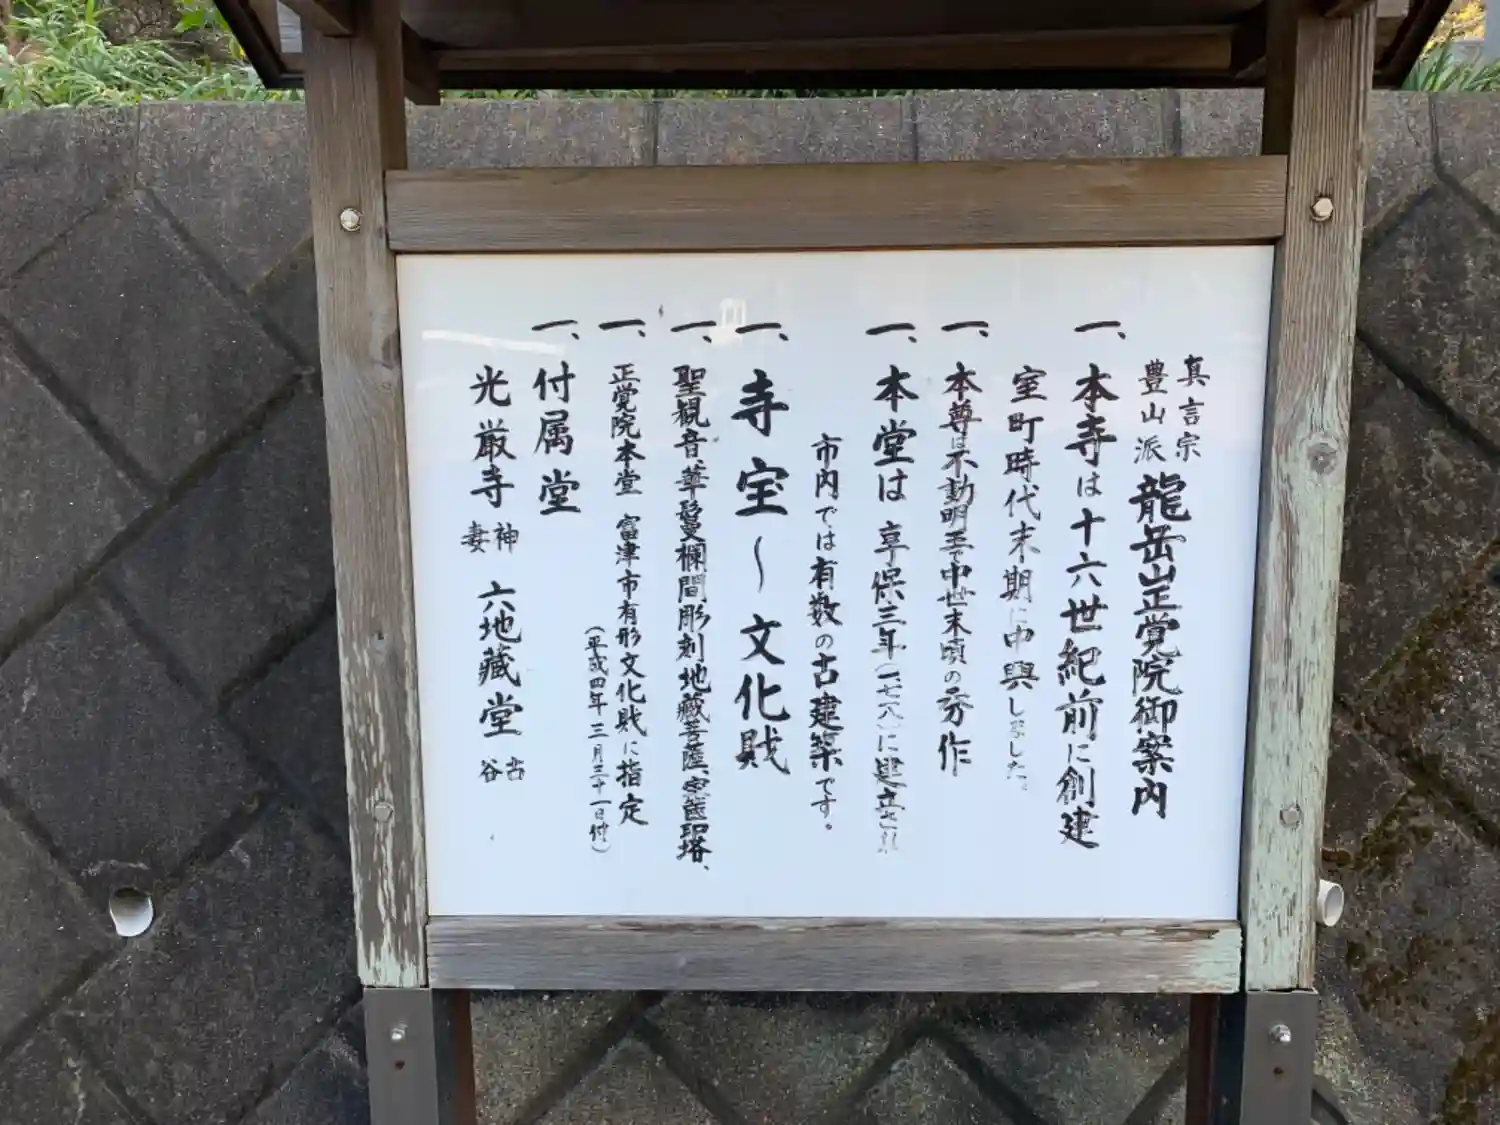 真言宗
豊山派 龍岳山正覚院御案内
一、本寺は十六世紀前に創建
室町時代末期に中興しました。
一、本尊は不動明王で中世末頃の秀作
一、本堂は享保三年(一七一八)に建立され
市内では有数の古建築です。
一、寺宝〜文化財
一、聖観音・華鬘・欄間彫刻・地蔵菩薩、
一、正覚院本堂 富津市有形文化財に指定
(平成四年三月三十一日付)
一、付属堂
光厳寺 神妻 六地蔵堂 古谷